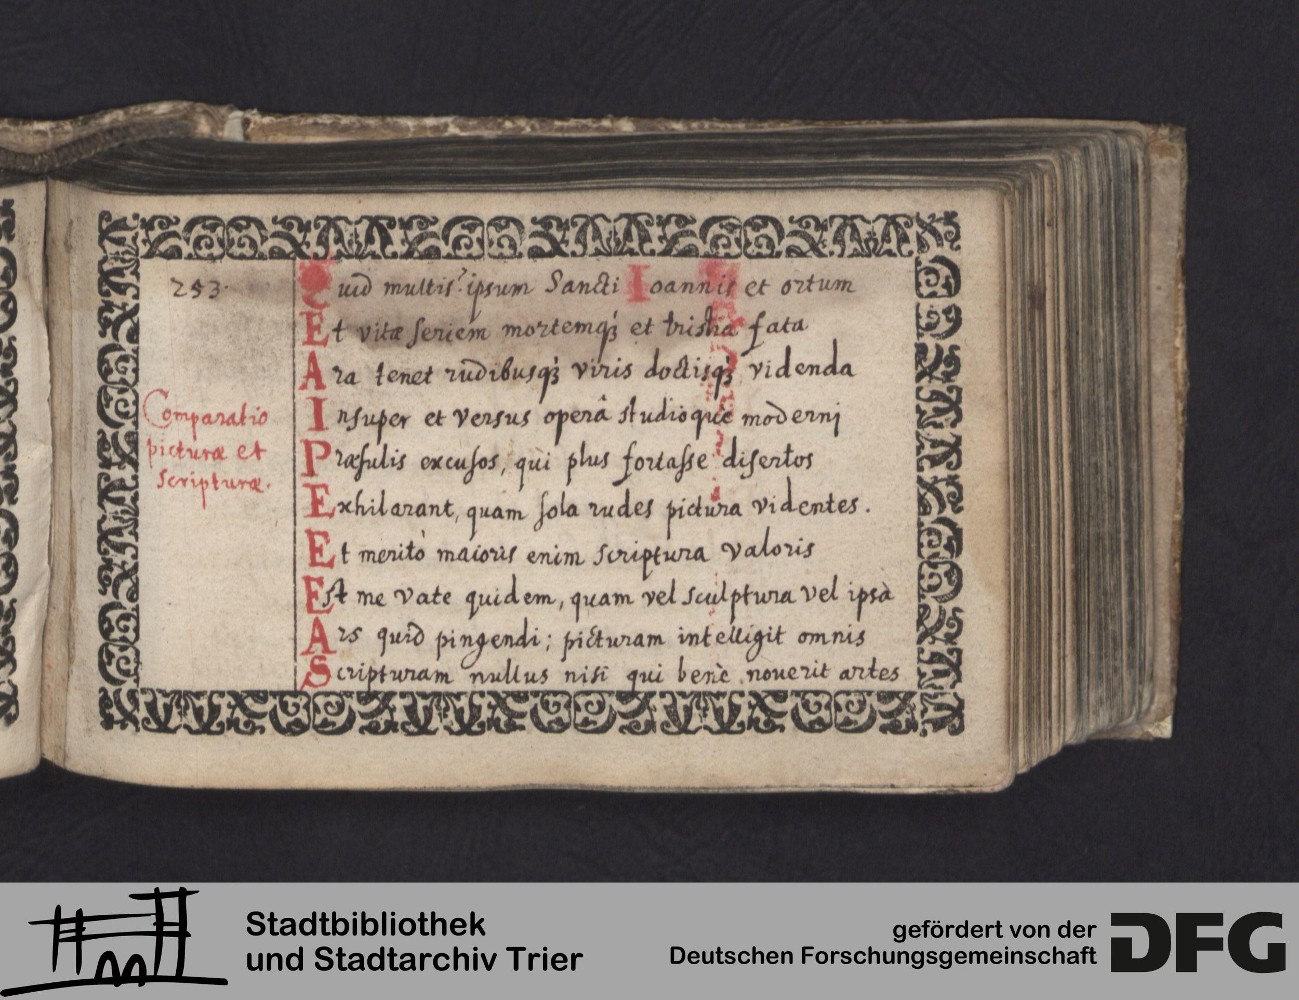 253.
Quid multis? ipsum Sancti Ioannis et ortum
Et vitæ seriem mortemq́; et tristia fata
Ara tenet rudibusq́; viris doctisq́; videnda
Insuper et versus operâ studioque moderni
Præsulis excusos, qui plus fortasse disertos
Exhilarant, quam sola rudes pictura videntes.
Et meritò maioris enim scriptura valoris
Est me vate quidem, quam vel sculptura vel ipsa
Ars quid pingendi; picturam intelligit omnis
Scripturam nullus nisi qui benè noverit artes
Comparatio
picturæ et
scripturæ.
Stadtbibliothek
und Stadtarchiv Trier
gefördert von der
Deutschen Forschungsgemeinschaft
DFG